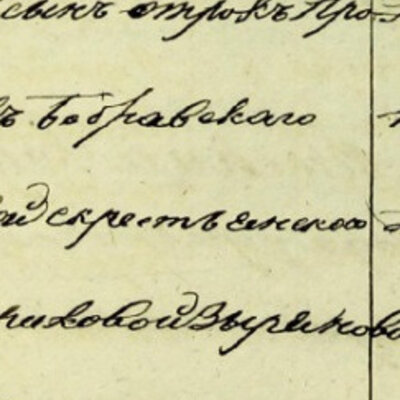 сынъ отрокъ Про
въ Бобравскаго
ой скрестьенскою
иковой Выриково